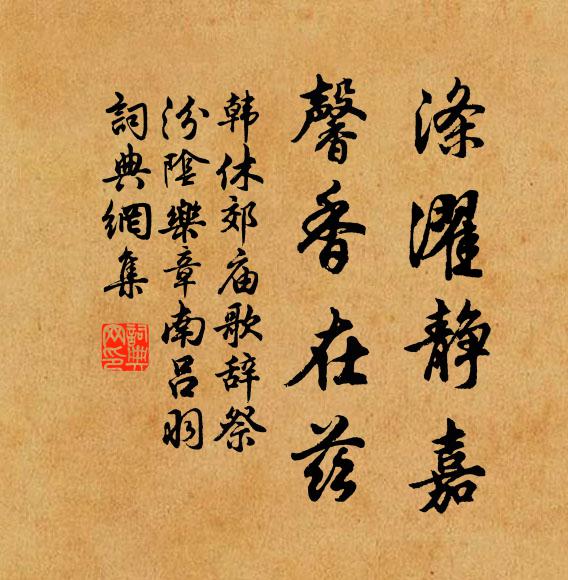 滌濯静嘉
馨香在茲
韩休郊庙歌辞祭
汾陰樂章南呂羽
詞典網集
詞典网印